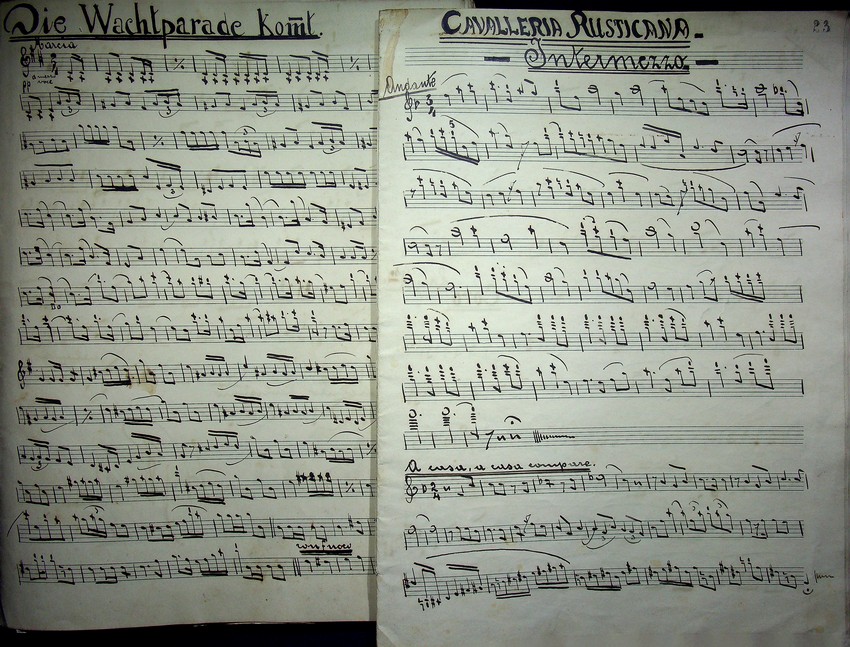 Die Wachtparade kom̅t.
Marcia
pp
CAVALLERIA RUSTICANA
— Intermezzo —
Andante
3
4
3
3
5
3
A casa, a casa compare.
2
4
con fuoco